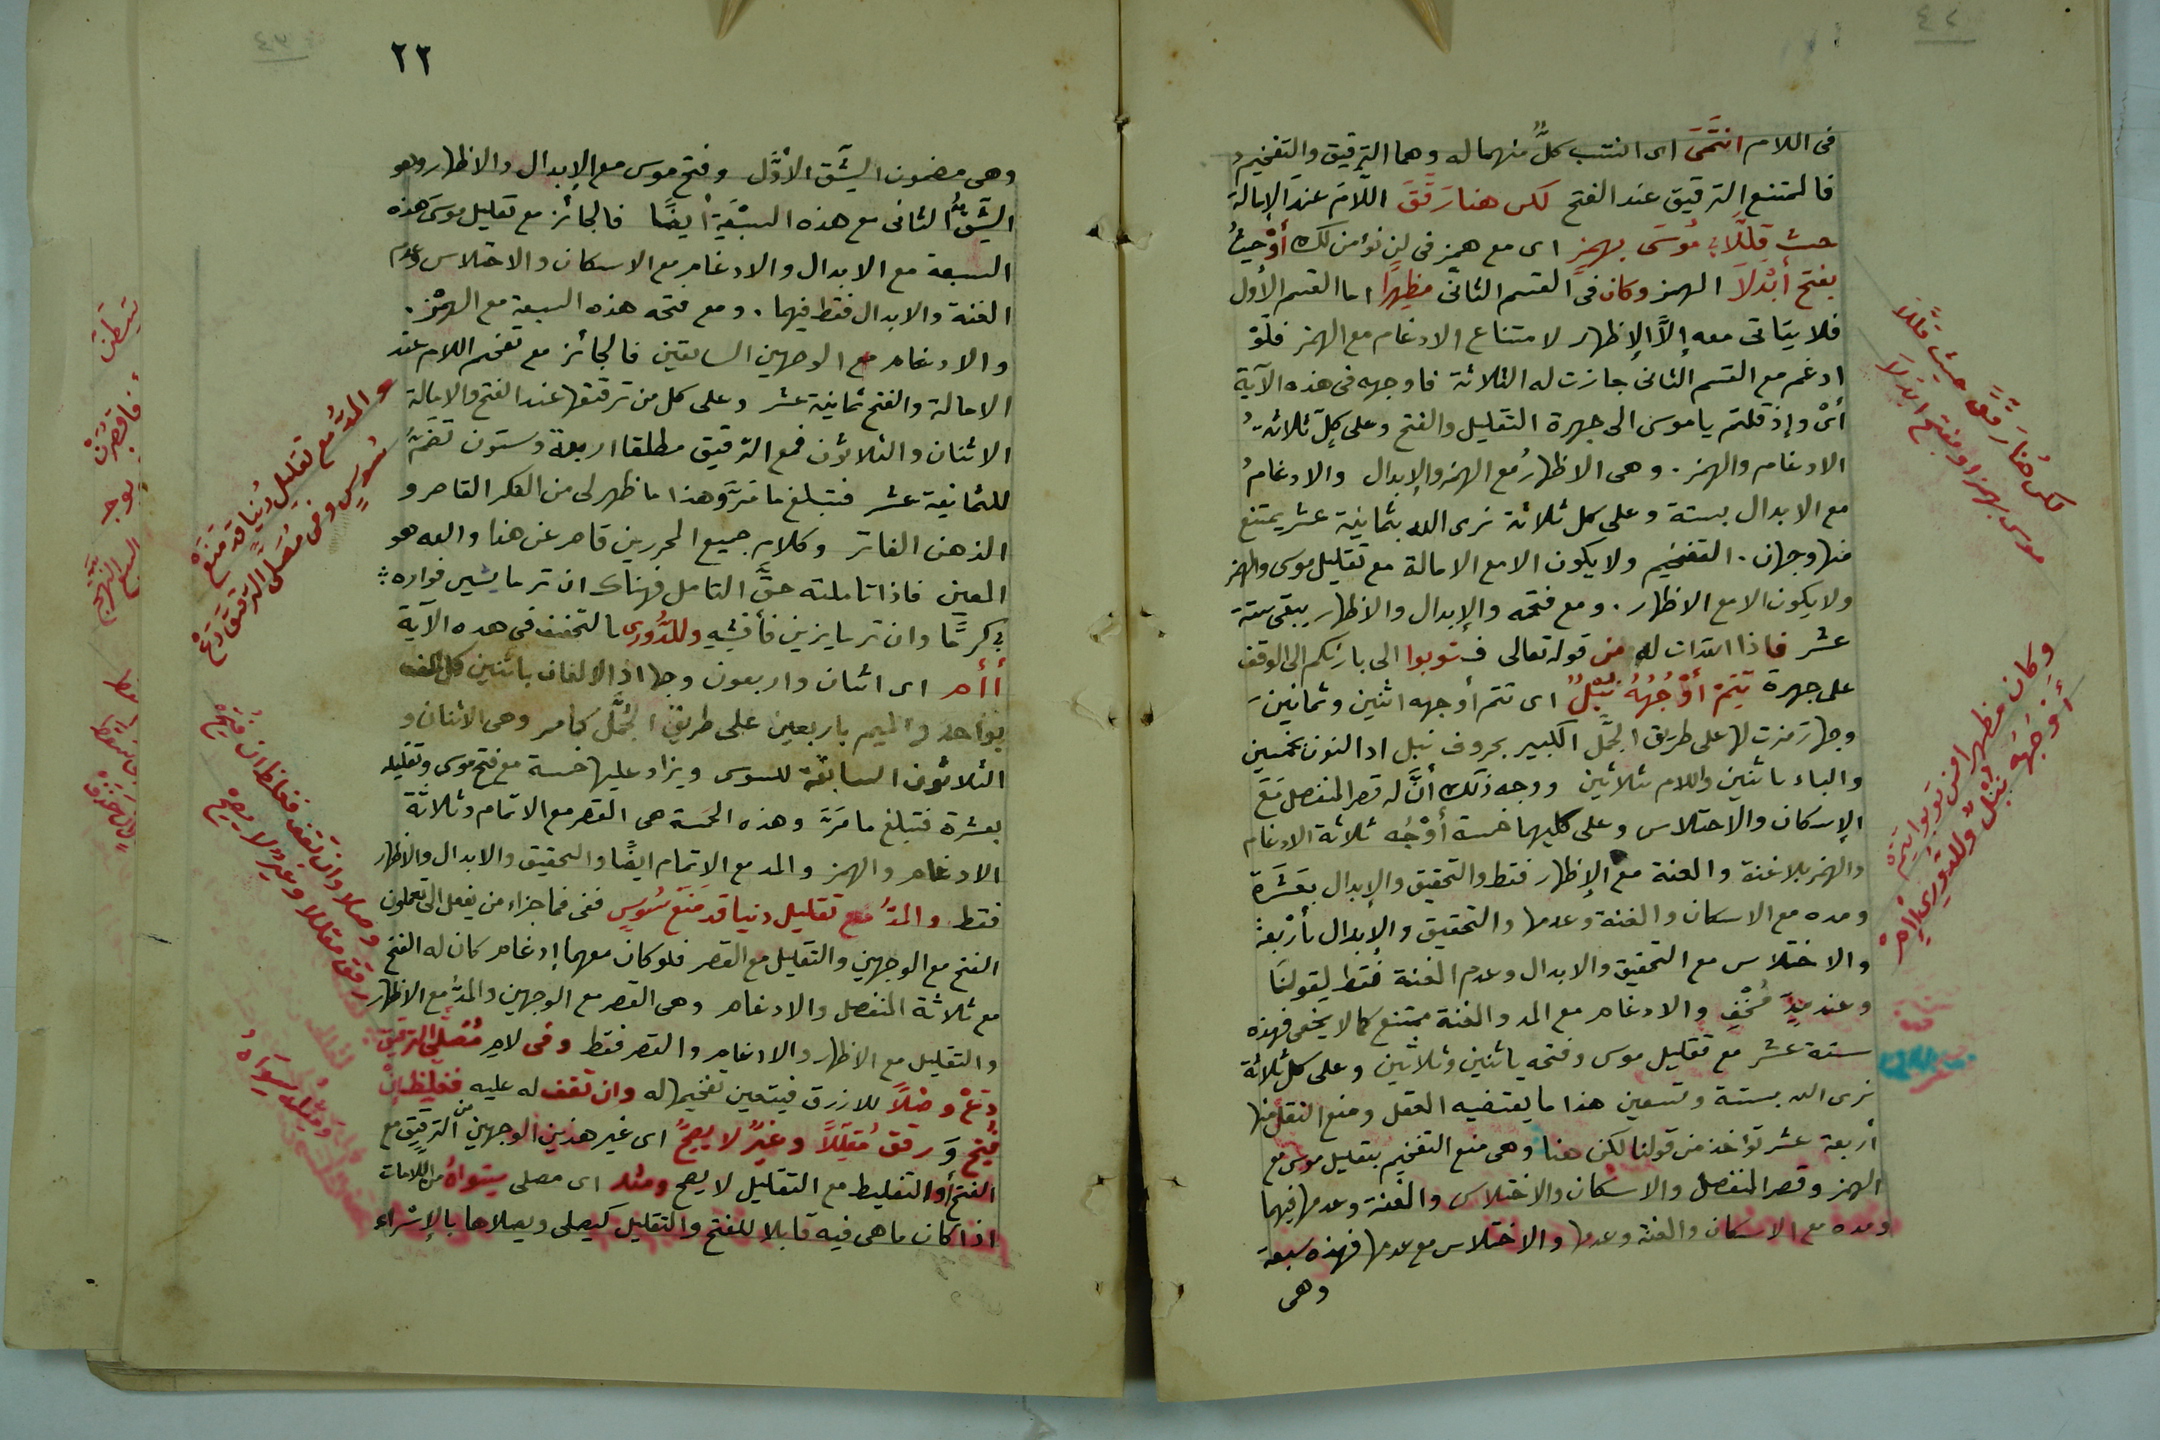 في اللام انتَمَى اى انتسب كلٌّ منهما له وهما الترقيق والتفخيم
فالممتنع الترقيق عند الفتح لكن هنا رَقِّقَ اللَّامَ عند الإمالة
حيث قلّلا مُوسَى بهمزٍ اى مع همز فى لن نؤمن لك أَوْ حيثُ
بفتح أَبْدَلَا الهمز وكان فى القسم الثانى مظهِرًا اما القسم الأول
فلا يتاتى معه إلَّا الإظهار لامتناع الادغام مع الهمز فلَوْ
ادغم مع القسم الثانى جازت له الثلاثة فاوجهه فى هذه الآية
أىْ وإذ قلتم ياموسى الى جهرة التقليل والفتح وعلى كلٍّ ثلاثةُ
الادغام والهمز . وهى الاظهارُ مع الهمز والإبدال والادغامُ
مع الابدال بستة وعلى كل ثلاثة نرى الله بثمانية عشر يمتنع
منها وجهان . التفخيم ولا يكون الا مع الامالة مع تقليل موسى والهمز
ولا يكون الا مع الاظهار . ومع فتحه والإبدال والاظهار يبقى ستة
عشر فاذا ابتدات له من قوله تعالى فتوبوا الى بارئكم الى الوقف
على جهرة تَتِمّ أَوْجُهُهُ نُبْلٌ اى تتم أوجهه اثنين وثمانين
وجها رمزت لها على طريق الجمَّل الكبير بحروف نبل اذ النون بخمسين
والباء باثنين واللام بثلاثين ووجه ذلك أنَّ له قصر المنفصل مَعَ
الإسكان والاختلاس وعلى كليهما خمسة أوْجُه ثلاثة الادغام
والهمز بلا غنة والغنة مع الإظهار فقط والتحقيق والإبدال بعَشَرَة
ومده مع الاسكان والغنة وعدمها والتحقيق والإبدال بأرْبعة
والاختلاس مع التحقيق والابدال وعدم الغنة فقط لقولنَا
وعند مدٍّ مُخْفِ والادغام مع المد والغنة ممتنع كما لا يخفى فهذه
ستة عشر مع تقليل موسى وفتحه باثنين وثلاثين وعلى كل ثلاثة
نرى الله بستة وتسعين هذا ما يقتضيه العقل ومنع النقل منها
أربعة عشر تؤاخذ من قولنا لكن هنا وهى منع التفخيم بتقليل موسى مع
الهمز وقصر المنفصل والاسكان والاختلاس والغنة وعدمها فيهما
ومده مع الاسكان والغنة وعدمها والاختلاس مع عدمها فهذه سبعة
وهى
لكن هُنَا رَقِّقْ حيث قلّلا
موسى بهمز او بفتح ابدلا
وكان مظهرا من توبوا تتم
أوجهه نُبْل وللدُّورى أَامْ
٢٢
وهى مضمون الشِّق الأوَّل وفتح موسى مع الإبدال والاظهار وهو
الشِّقُّ الثانى مع هذه السبْعَةِ أيضًا فالجائز مع تقليل موسى هذه
السبعة مع الابدال والادغام مع الاسكان والاختلاس وعدم
الغنة والابدال فقط فيهما . ومع فتحه هذه السبعة مع الهمْز .
والادغام مع الوجهين السابقين فالجائز مع تفخيم اللام عند
الامالة والفتح ثمانية عشر وعلى كل من ترقيقها عند الفتح والامالة
الاثنان والثلاثون فمع الترقيق مطلقا اربعة وستون تضمّ
للثمانية عشر فتبلغ ما مرَّ وهذا ما ظهر لى من الفكر القاصر و
الذهن الفاتر وكلام جميع المحررين قاصر عن هذا والله هو
المعين فاذا تاملته حقَّ التامل فهناك ان تر ما يشين فواره
كرمًا وان تر ما يزين فأفشِهِ وللدُّورى بالتخفيف فى هذه الآية
أَأم اى اثنان واربعون وجها اذ الالفان باثنين كل الف
بواحد والميم باربعين على طريق الجُمَّل كما مر وهى الاثنان و
الثلاثون السابقة للسوسى ويزاد عليها خمسة مع فتح موسى وتقليله
بعشرة فتبلغ ما مَرَّ وهذه الخمسة هى القصر مع الاتمام وثلاثة
الادغام والهمز والمد مع الاتمام ايضًا والتحقيق والابدال والاظهار
فقط والمدُّ مع تقليل دنيا قد مَنَعْ سُوسٍ ففى فما جزاء من يفعل الى تعملون
الفتح مع الوجهين والتقليل مع القصر فلو كان معهما إدغام كان له الفتح
مع ثلاثة المنفصل والادغام وهى القصر مع الوجهين والمدُّ مع الاظهار
والتقليل مع الاظهار والادغام والقصر فقط وفى لامِ مُصَلًّى الترقيقَ
دَعْ وصْلًا للازرق فيتعين تفخيمها له وان تقف له عليه فغلِّظ إنْ
فُتِحْ وَ رقق مُقلِّلًا وغيرٌ لا يصِحّْ اى غير هذين الوجهين من الترقيق مع
الفتح أو التغليط مع التقليل لا يصح ومثله اى مصلى سِوَاهُ من اللامات
اذا كان ما هى فيه قابلا للفتح والتقليل كيصلى ويصلاها بالإسْراء
والمدُّ مع تقليل دُنيا قد مَنَعْ
سُوسٍ وفى مُصَلًّى الترقيق دَعْ
وصلا وان تقف فغلظ ان فُتِحْ
رقق مقللا وغيرٌ لا يصِحّْ
ومثله سِوَاهُ